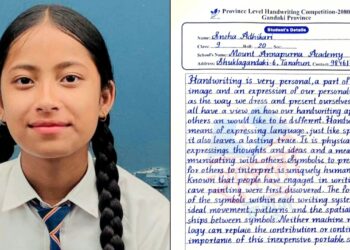 Province Level Handwriting Competition-2080
Gandaki Province
Student's Details
Name:
Adhikari
Class: 9 Roll: 20 Sec:
School:- Mount Annapurna Academy
Address: Shuklagandaki-6, Tanahun Contact:
Handwriting is very personal, a part of
image and an expression of our personal
as the way we dress and present ourselves
all have a view on how our handwriting ap
others an would like to be different. Handwr
means of expressing language, just like sp
it also leaves a lasting trace. It is physica
expressing thoughts and ideas and a mea
municating with others. Symbolic to pre
for others to interpret is uniquely human
known that people have engaged in writing
cave painting were first discovered. The fo
of the symbols within each writing system
ideal movement, patterns and the spatial
ships between symbols. Neither machine n
logy can replace the contribution or contin
importance of this inexpensive portable s